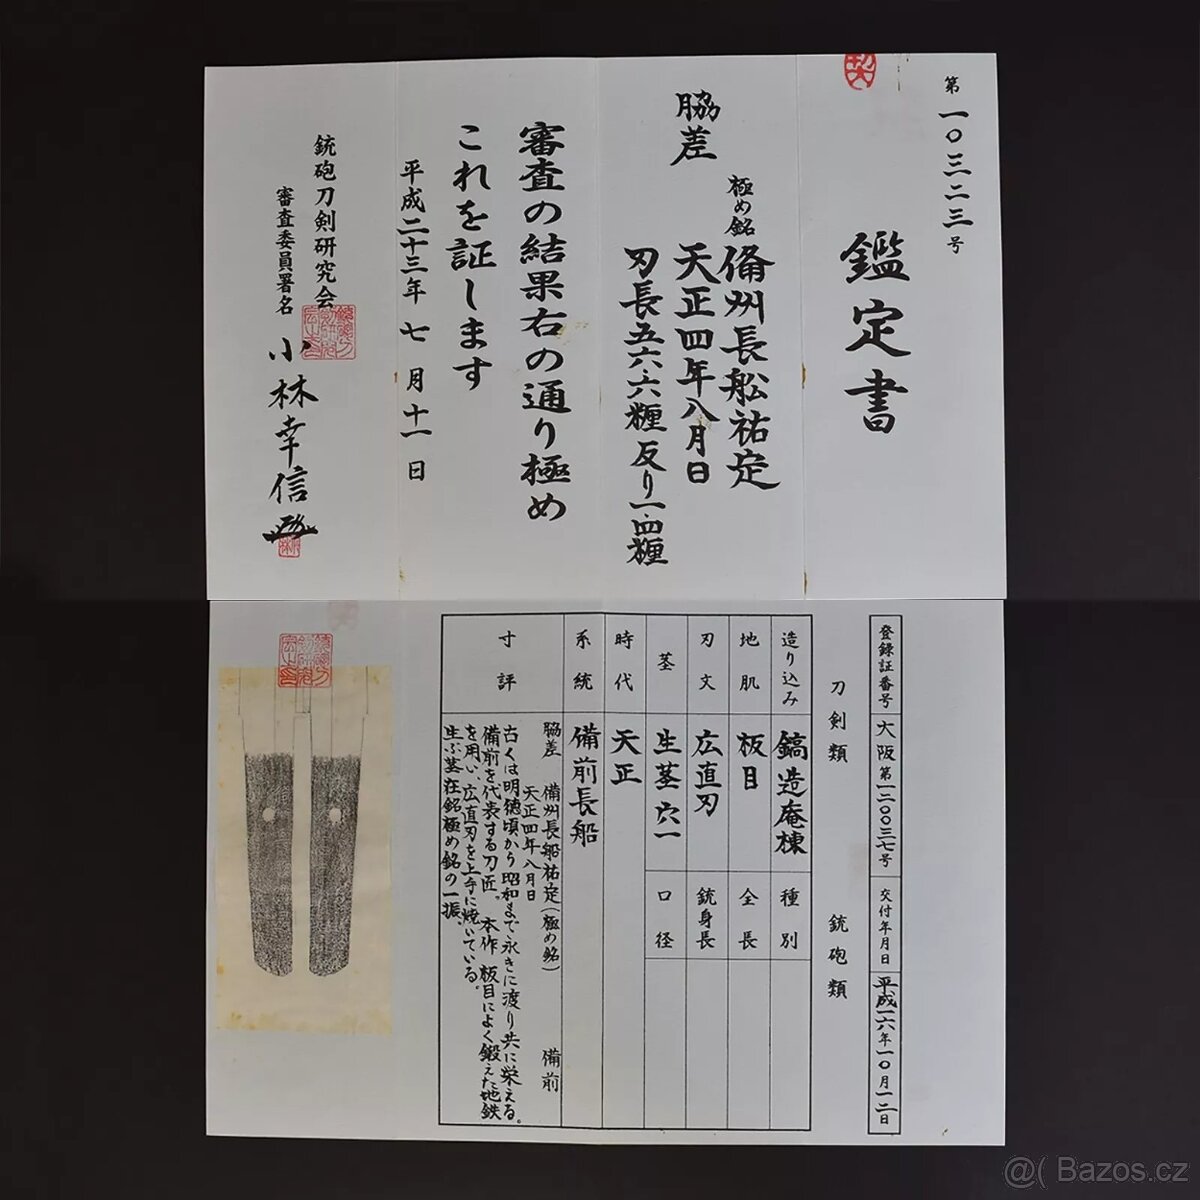 第一〇三二三号
鑑定書
脇差
極め銘 备州長舩祐定
天正四年八月日
刃長五六.六糎 反り一.四糎
審査の結果右の通り極め
これを証します
平成二十三年 七 月 十一 日
銃砲刀剣研究会
審査委員署名
小林幸信
登録証番号 大阪第一二〇〇三七号 交付年月日 平成一六年一〇月一二日
刀剣類 銃砲類
造り込み 鎬造庵棟 種別
地肌 板目 全長
刃文 広直刃 銃身長
茎 生茎穴一 口径
時代 天正
系統 備前長船
寸評
脇差 備州長船祐定(極め銘) 備前
天正四年八月日
古くは明徳頃から昭和まで永きに渡り共に栄える。
備前を代表する刀匠。本作 板目によく鍛えた地鉄
を用い、広直刃を上手に焼いている。
生ぶ茎在銘極め銘の一振、
@( Bazos.cz